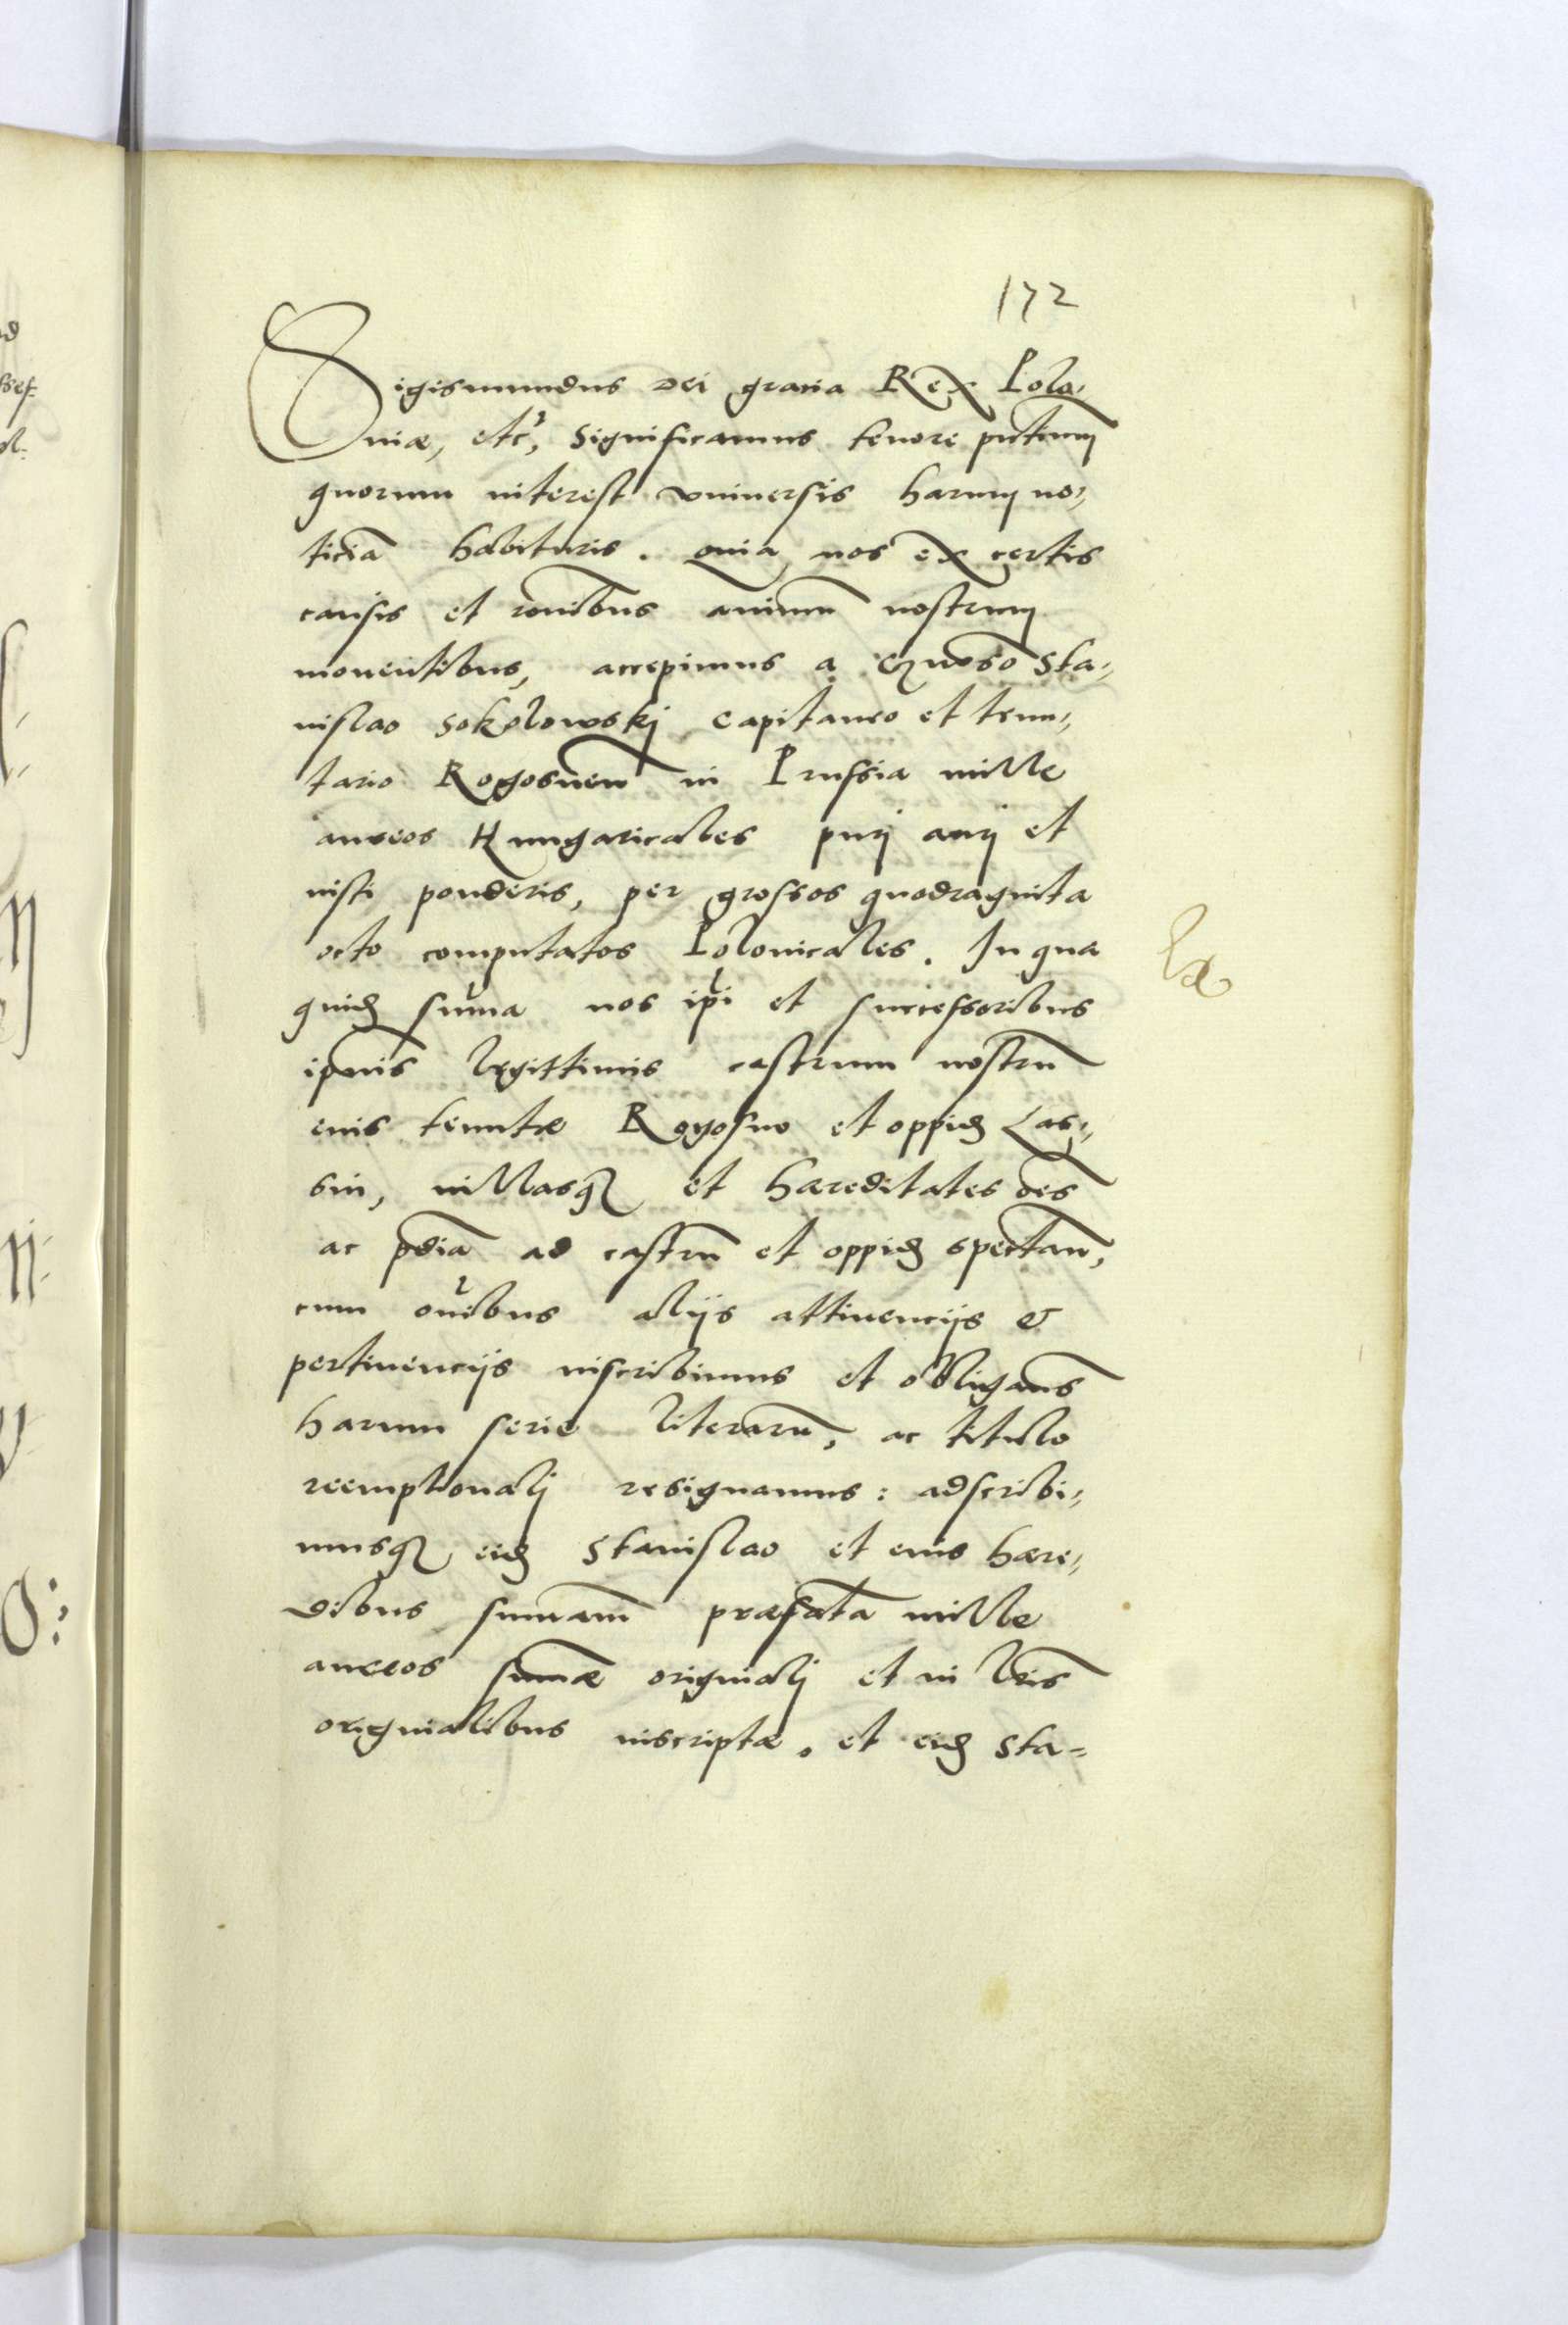 172
Sigismundus Dei gratia Rex Polo,
niæ, etc, significamus tenore pntium
quorum interest universis harum no,
ticiã habituris. quia nos ex certis
causis et rõnibus animũ nostrum
moventibus, accepimus a gnoso Sta,
nislao Sokolowskj Capitaneo et tenu,
tario Rogosneñ in Prussia mille
aureos Hungaricales purj aurj et
iusti ponderis, per grossos quadraginta
octo computatos Polonicales. In qua
quid suma nos ipi et successoribus
ipius legittimis castrum nostrũ
eius tenutæ Rogosno et oppid Las,
sin, villasq et hæreditates oẽs
ac pdia ad castrũ et oppid spectañ,
cum oĩbus alijs attinencijs &
pertinencijs inscribimus et obligams
harum serie literarũ, ac titulo
reemptionalj resignamus: adscribi,
musq eid Stanislao et eius hære,
dibus sumam præfata mille
aureos sumæ originalj et in lris
originalibus inscriptæ. et eid Sta=